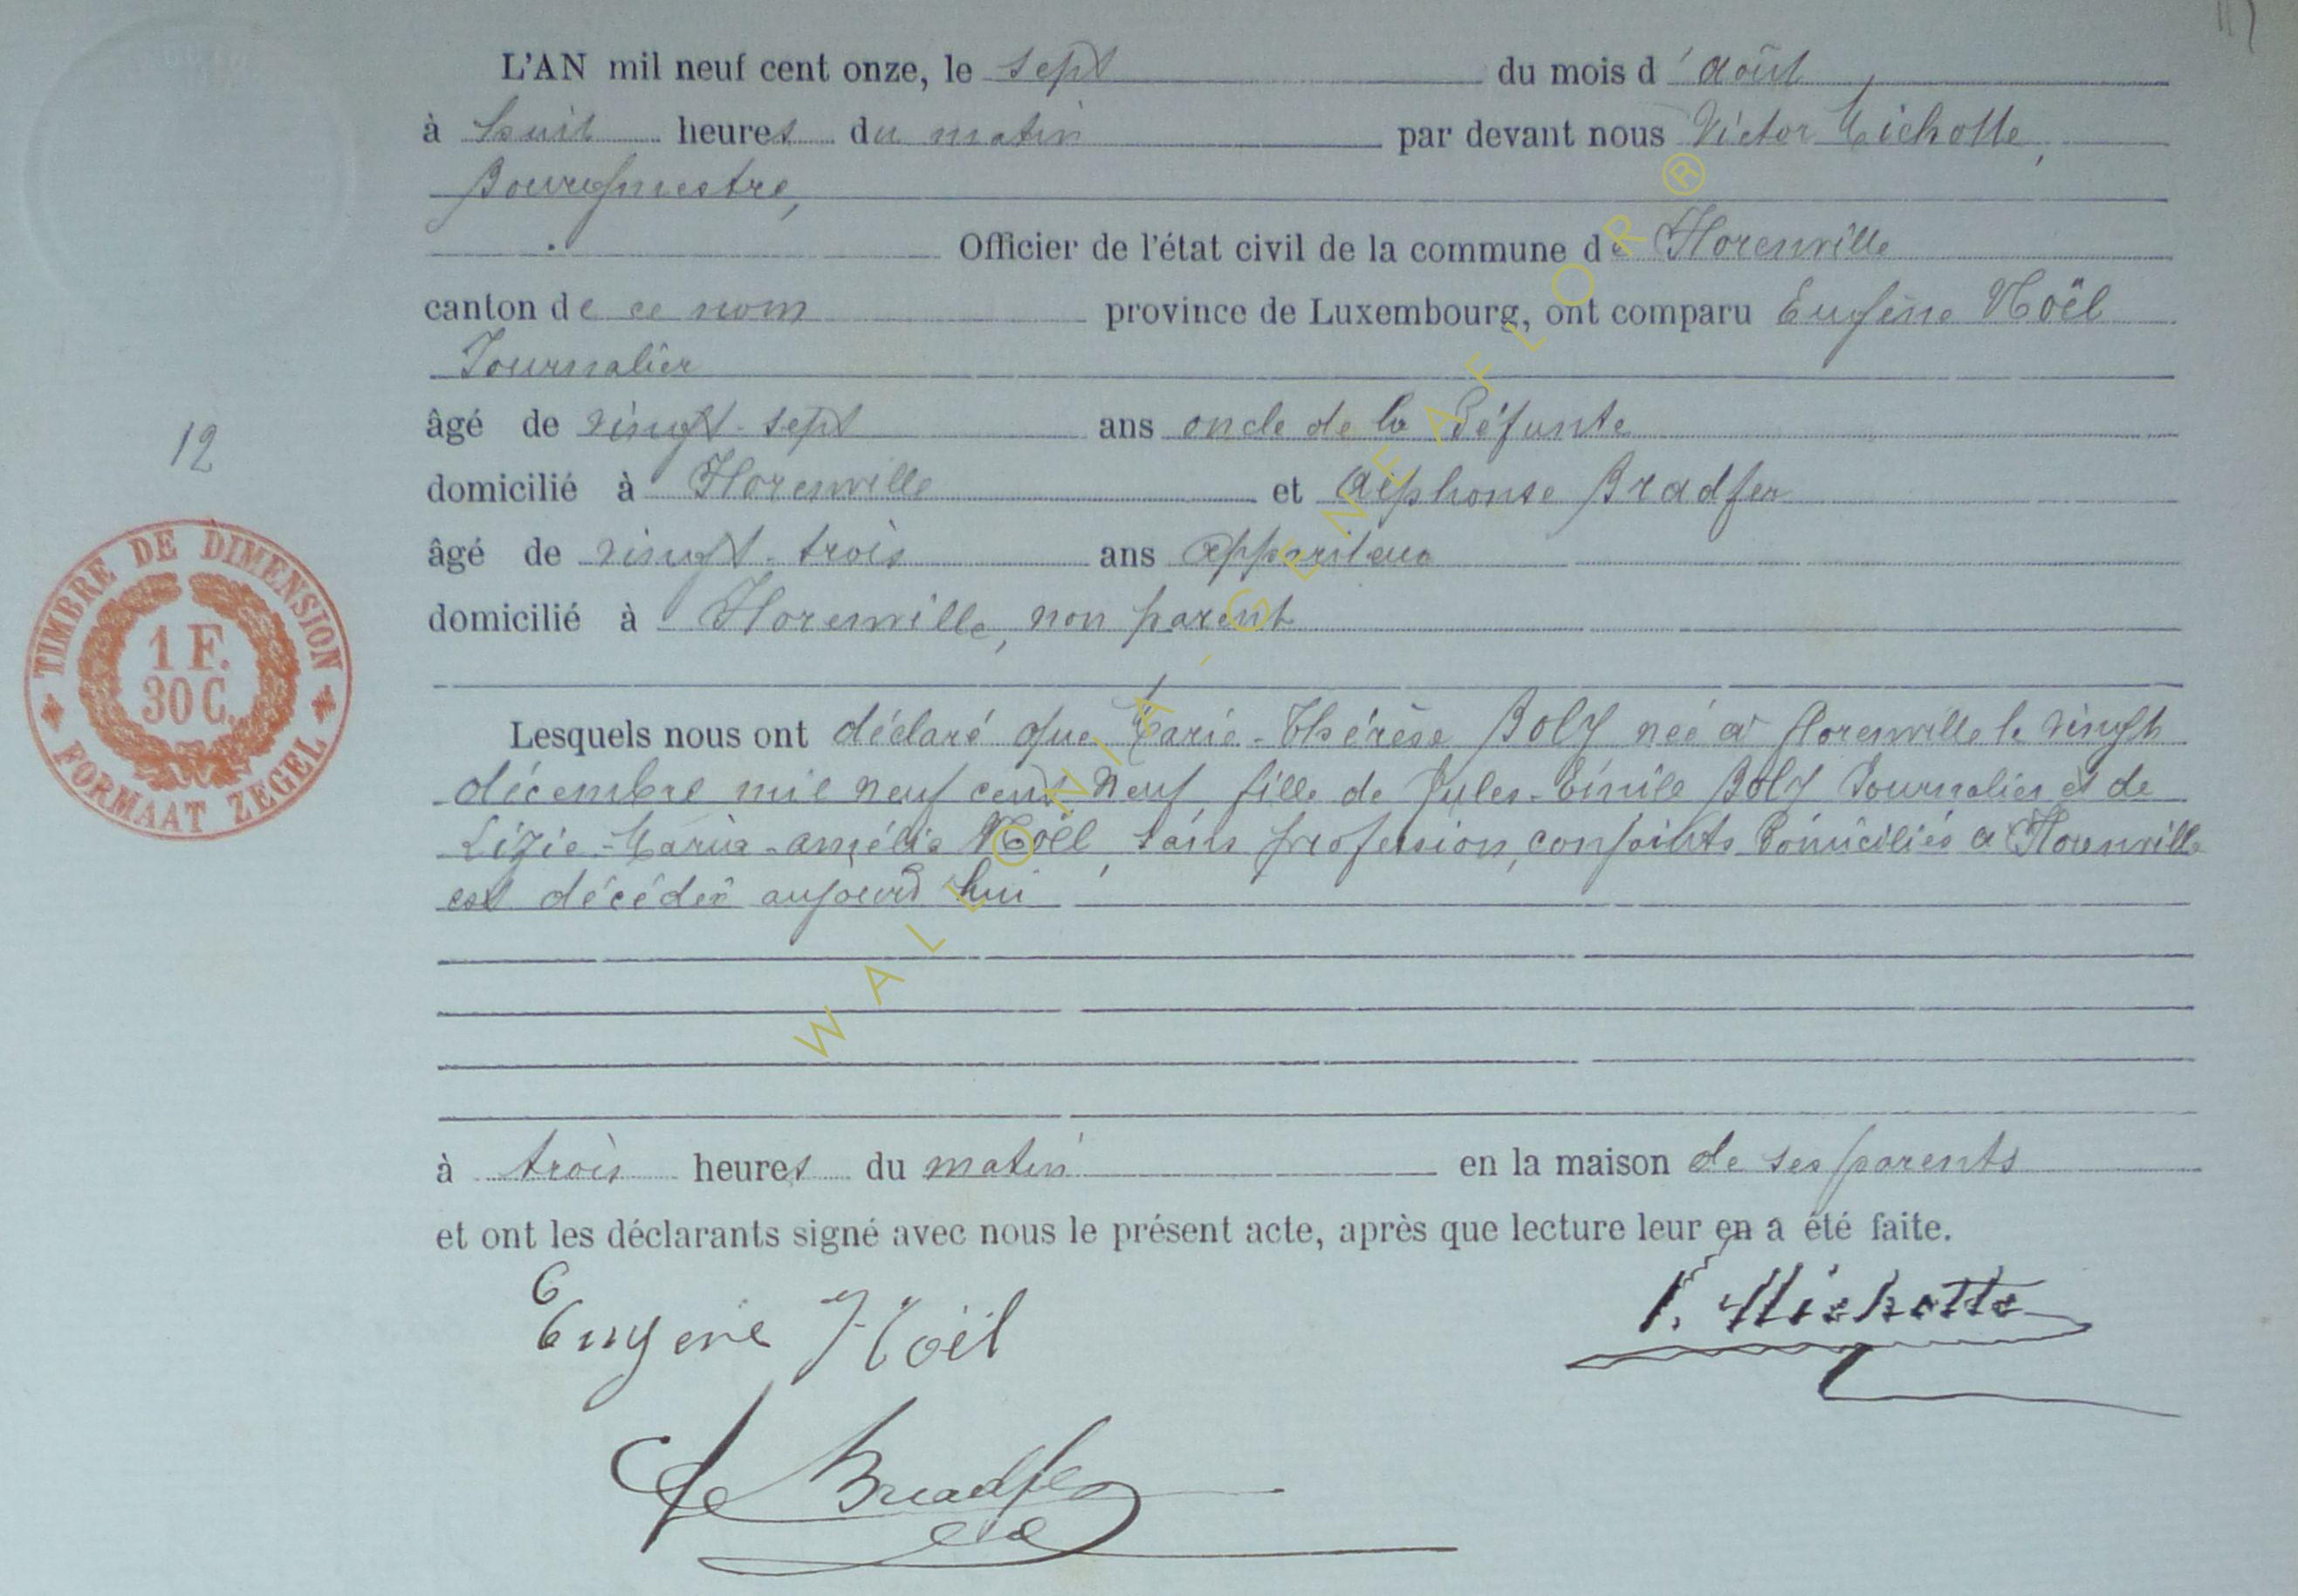 L'AN mil neuf cent onze, le sept du mois d'août,
à huit heures du matin par devant nous Victor Michotte,
Bourgmestre,
Officier de l'état civil de la commune de Florenville
canton de ce nom province de Luxembourg, ont comparu Eugène Noël
Journalier
âgé de vingt-sept ans oncle de la défunte
domicilié à Florenville et Alphonse Bradfer
12
âgé de vingt-trois ans appariteur
domicilié à Florenville, non parent
TIMBRE DE DIMENSION
1 F.
30 C.
FORMAAT ZEGEL
Lesquels nous ont déclaré que Marie-Thérèse Boly née à Florenville le vingt
décembre mil neuf cent neuf, fille de Jules-Emile Boly Journalier et de
Lizie-Maria-amélia Noël, sans profession, conjoints domiciliés à Florenville
est décédée aujourd'hui
à trois heures du matin en la maison de ses parents
et ont les déclarants signé avec nous le présent acte, après que lecture leur en a été faite.
Eugène Noël
V. Michotte
Bradfer
WALLONIA-GENEAFLOR®